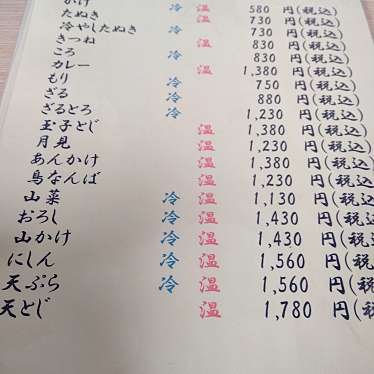 かけ 冷 温 580 円(税込)
たぬき 温 730 円(税込)
冷やしたぬき 冷 730 円(税込)
きつね 温 830 円(税込)
ころ 冷 830 円(税込)
カレー 温 1,380 円(税込)
もり 冷 750 円(税込)
ざる 冷 880 円(税込)
ざるとろ 冷 1,230 円(税込)
玉子とじ 温 1,380 円(税込)
月見 温 1,230 円(税込)
あんかけ 温 1,380 円(税込)
鳥なんば 温 1,230 円(税込
山菜 冷 温 1,130 円(税込
おろし 冷 温 1,430 円(税込
山かけ 冷 温 1,430 円(税
にしん 冷 温 1,560 円(税
天ぷら 冷 温 1,560 円(税
天とじ 温 1,780 円(税